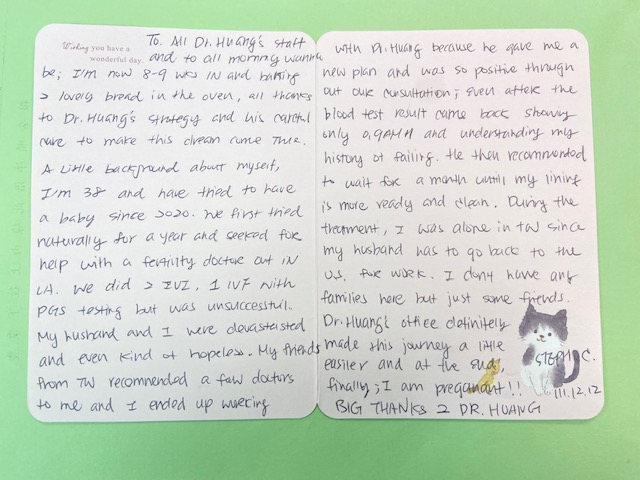 Wishing you have a
wonderful day.
To. All Dr. Huang's staff
and to all
be, I'm now 8-9 wks in and baking
2 lovely bread in the oven, all thanks
to Dr. Huang's strategy and his careful
care to make this dream come true.
A little background about myself,
I'm 38 and have tried to have
a baby since 2020. We first tried
naturally for a year and seeked for
help with a fertility doctor out in
LA. We did 2 IUI, 1 IVF with
PGS testing but was unsuccessful.
My husband and I were devastated
and even kind of hopeless. My friends
from TW recommended a few doctors
to me and I ended up working
with Dr. Huang because he gave me a
new plan and was so positive through
out our consultation; even after the
blood test result came back showing
only 0.9AMH and understanding my
history of failing. He then recommended
to wait for a month until my lining
is more ready and clean. During the
treatment, I was alone in TW since
my husband had to go back to the
U.S. for work. I don't have any
families here but just some friends.
Dr. Huang's office definitely
made this journey a little
easier and at the end,
finally, I am pregnant!!!
BIG THANKS 2 DR. HUANG
111.12.12